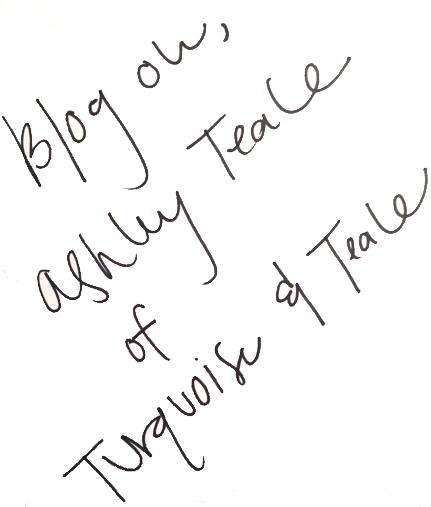 Blog on,
Ashley Teale
of
Turquoise & Teale